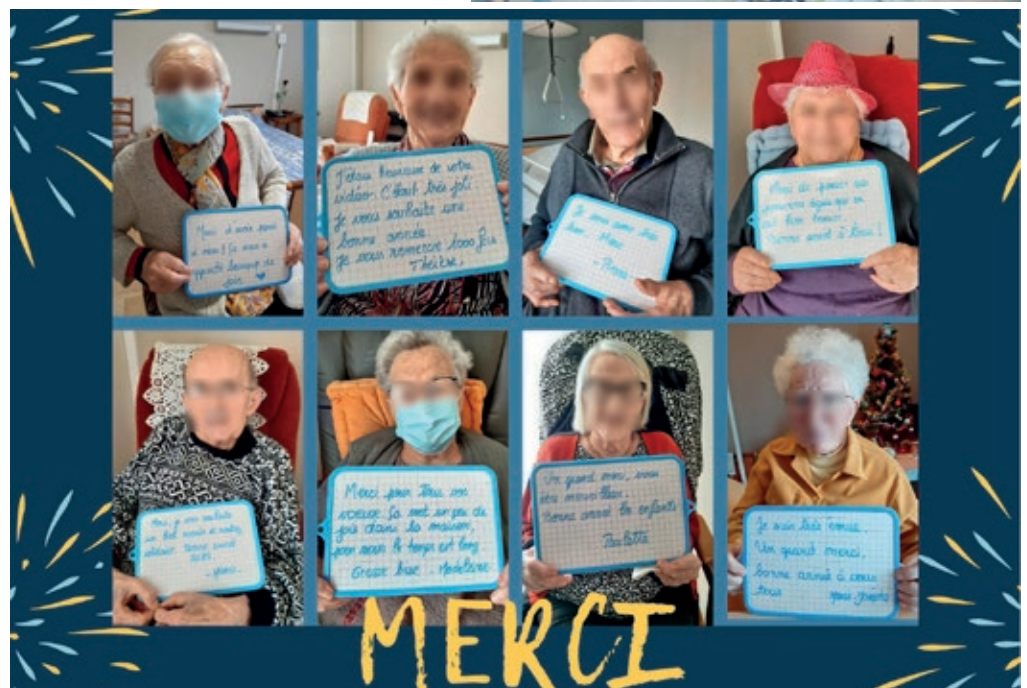 Merci d'avoir pensé
à nous ! Ça nous a
apporté beaucoup de
joie
J'étais heureuse de votre
vidéo. C'était très joli
Je vous souhaite une
bonne année.
Je vous remercie 1000 fois
Thérèse,
Je vous aime très
fort. Merci
Merci de penser
Bonne année à tous !
Merci, je vous souhaite
un bel
Bonne année
Merci pour tous vos
voeux Ça met un peu de
joie dans la maison,
pour nous le temps est long
Grosse bise - Madeleine
Un grand merci, vous
êtes merveilleux.
Bonne année les enfants
Paulette
Je suis très émue.
Un grand merci,
bonne année à vous
tous
MERCI